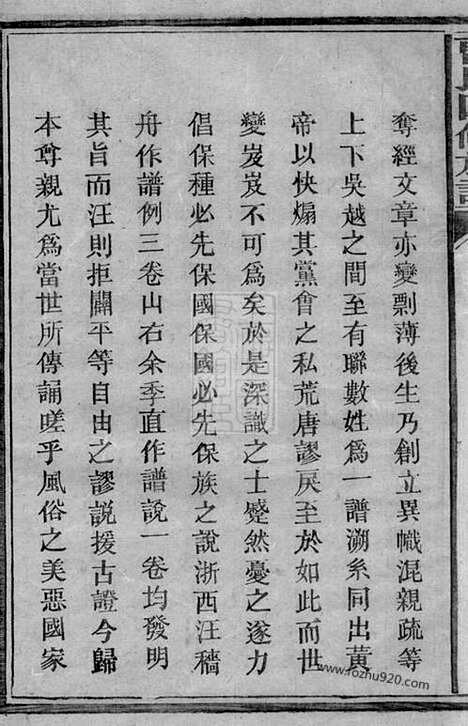 奪經文章亦變剽薄後生乃創立異幟混親疏等
上下吳越之間至有聯數姓爲一譜溯系同出黃
帝以快煽其黨會之私荒唐謬戾至於如此而世
變岌岌不可爲矣於是深識之士蹙然憂之遂力
倡保種必先保國保國必先保族之說浙西汪穡
舟作譜例三卷山右余季直作譜說一卷均發明
其旨而汪則拒闢平等自由之謬說援古證今歸
本尊親尤爲當世所傳誦嗟乎風俗之美惡國家
yizhu920.com